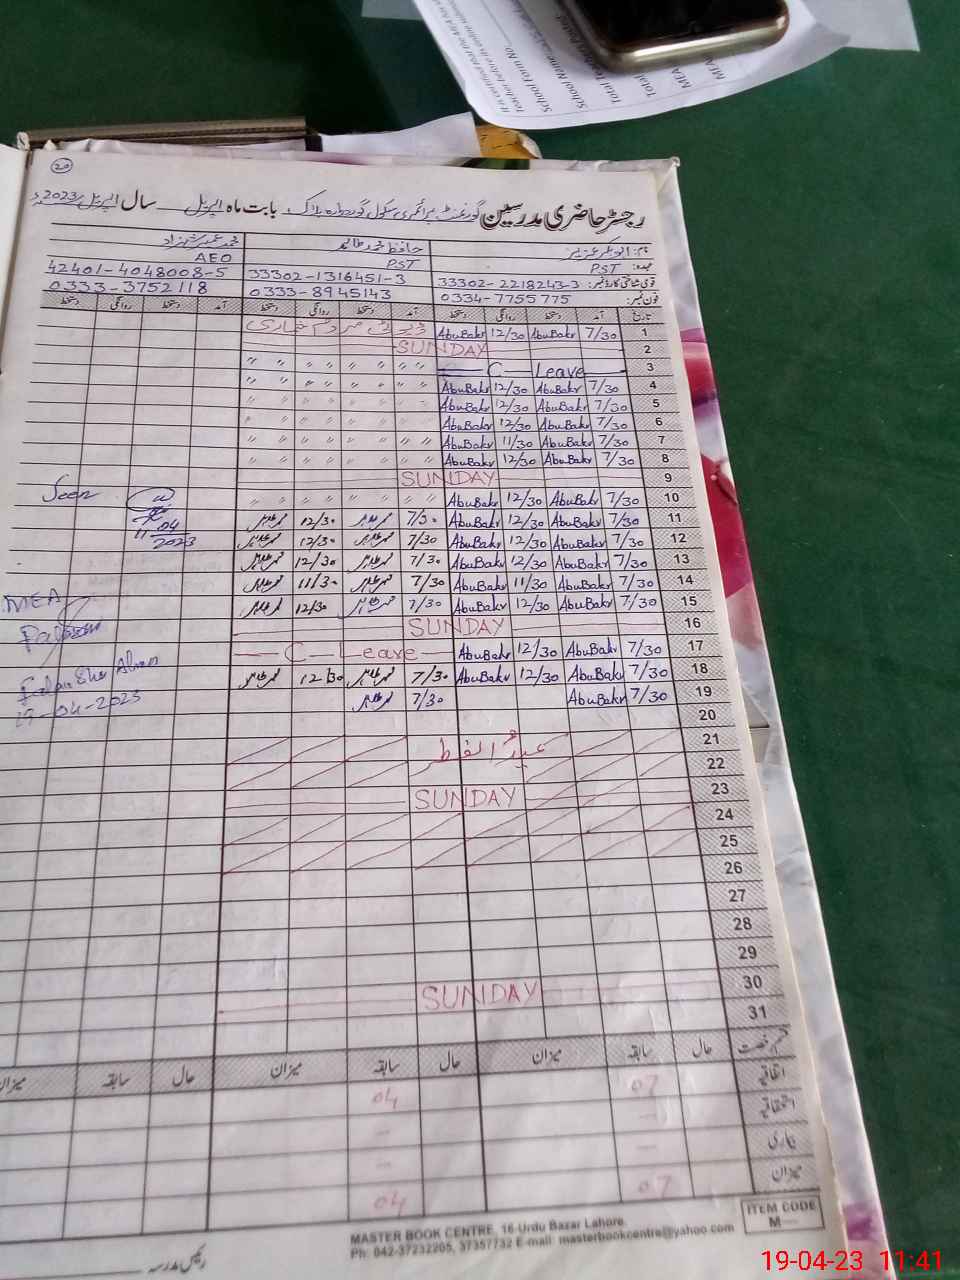 It is certified that the MEA has
Teacher before its online submission
School Form No
School Name
Total Teachers Posted
Total
MEA
MEA
20
رجسٹر حاضری مدرسین گورنمنٹ پرائمری سکول گوردوارہ بلاک بابت ماہ اپریل سال اپریل 2023ء
نام: ابوبکر عزیز حافظ محمد طاہر محمد عمیر شہزاد
عہدہ: PST PST AEO
قومی شناختی کارڈ نمبر: 33302-2218243-3 33302-1316451-3 42401-4048008-5
فون نمبر: 0334-7755775 0333-8945143 0333-3752118
تاریخ آمد دستخط روانگی دستخط آمد دستخط روانگی دستخط آمد دستخط روانگی دستخط
1 7/30 AbuBakr 12/30 AbuBakr ڈیوٹی مردم شماری
2 SUNDAY
3 C Leave " " " " " " " "
4 7/30 AbuBakr 12/30 AbuBakr " " " " " " " "
5 7/30 AbuBakr 12/30 AbuBakr " " " " " " " "
6 7/30 AbuBakr 12/30 AbuBakr " " " " " " " "
7 7/30 AbuBakr 11/30 AbuBakr " " " " " " " "
8 7/30 AbuBakr 12/30 AbuBakr " " " " " " " "
9 SUNDAY
10 7/30 AbuBakr 12/30 AbuBakr " " " " " " " " Seen
11 7/30 AbuBakr 12/30 AbuBakr 7/30 محمد طاہر 12/30 محمد طاہر 11-04
12 7/30 AbuBakr 12/30 AbuBakr 7/30 محمد طاہر 12/30 محمد طاہر 2023
13 7/30 AbuBakr 12/30 AbuBakr 7/30 محمد طاہر 12/30 محمد طاہر
14 7/30 AbuBakr 11/30 AbuBakr 7/30 محمد طاہر 11/30 محمد طاہر
15 7/30 AbuBakr 12/30 AbuBakr 7/30 محمد طاہر 12/30 محمد طاہر MEA
16 SUNDAY
17 7/30 AbuBakr 12/30 AbuBakr C Leave
18 7/30 AbuBakr 12/30 AbuBakr 7/30 محمد طاہر 12/30 محمد طاہر
19 7/30 AbuBakr 7/30 محمد طاہر 19-04-2023
20
21 عید الفطر
22
23 SUNDAY
24
25
26
27
28
29
30 SUNDAY
31
قسم رخصت حال سابقہ میزان حال سابقہ میزان حال سابقہ میزان
اتفاقیہ 07 04
استحقاقیہ – –
بیماری – –
میزان 07 04
ITEM CODE
M—
MASTER BOOK CENTRE, 16-Urdu Bazar Lahore.
Ph: 042-37232205, 37357732 E-mail: masterbookcentre@yahoo.com
رئیس مدرسہ
19-04-23 11:41